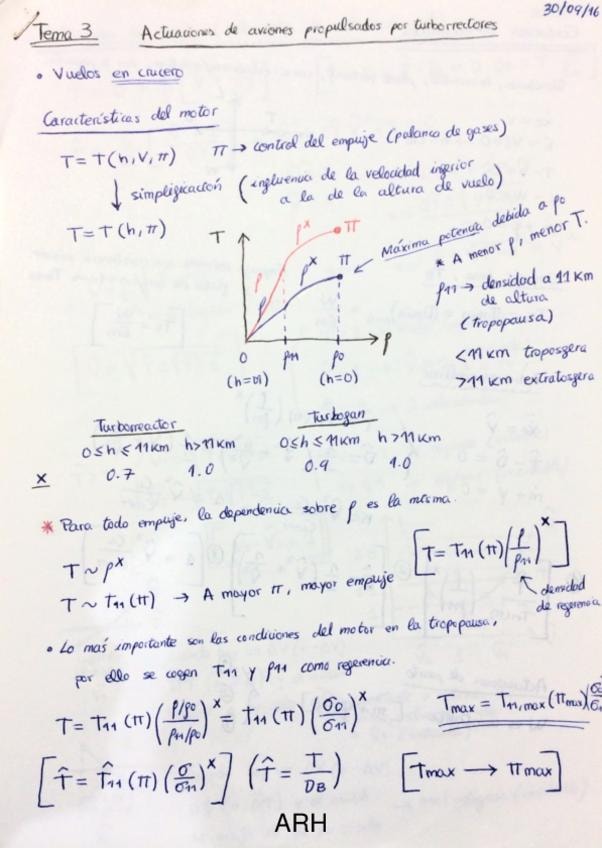 30/09/16
Tema 3 Actuaciones de aviones propulsados por turborrectores
• Vuelos en crucero
Características del motor
T = T(h, V, π) π → control del empuje (palanca de gases)
↓ simplificación (influencia de la velocidad inferior
a la de la altura de vuelo)
T = T(h, π)
T ρ^x π
ρ ρ^x π
ρ
Máxima potencia debida a ρ0
* A menor ρ, menor T.
ρ11 → densidad a 11 km
de altura
(tropopausa)
<11 km troposfera
>11 km extratosfera
0 ρ11 ρ0 ρ
(h=∞) (h=0)
Turborreactor Turbofan
0≤h≤11Km h>11Km 0≤h≤11Km h>11Km
x 0.7 1.0 0.9 1.0
* Para todo empuje, la dependencia sobre ρ es la misma.
T ~ ρ^x [T = T11(π)(ρ/ρ11)^x]
T ~ T11(π) → A mayor π, mayor empuje
densidad
de referencia
• Lo más importante son las condiciones del motor en la tropopausa,
por ello se cogen T11 y ρ11 como referencia.
T = T11(π)((ρ/ρ0)/(ρ11/ρ0))^x = T11(π)(σ0/σ11)^x Tmax = T11,max(πmax)(σ
[T̂ = T̂11(π)(σ/σ11)^x] (T̂ = T/DB) [Tmax → πmax]
ARH